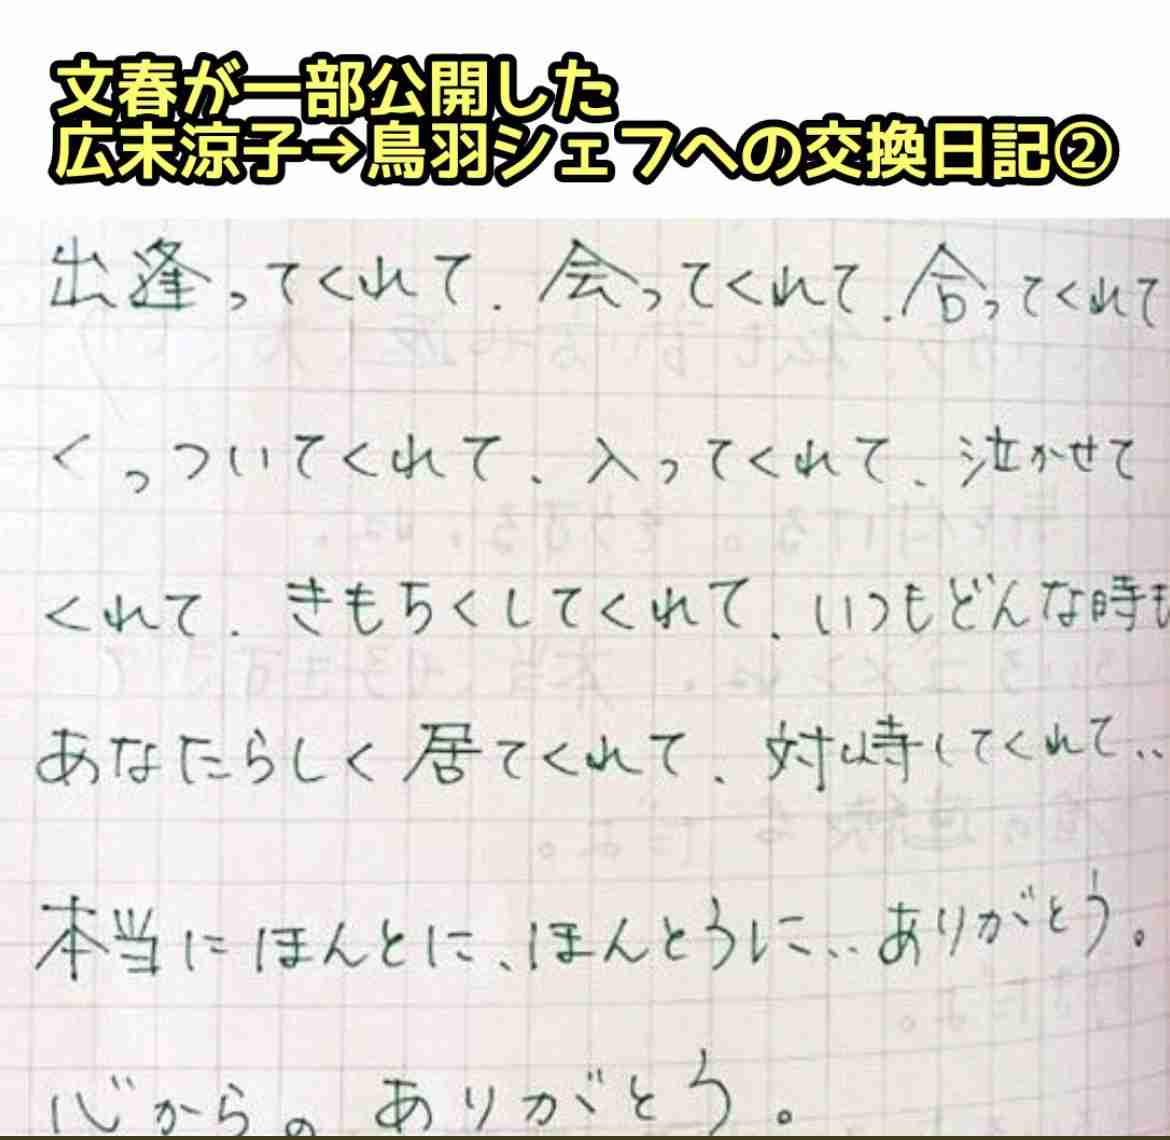 文春が一部公開した
広末涼子→鳥羽シェフへの交換日記②
出逢ってくれて、会ってくれて、合ってくれて
くっついてくれて、入ってくれて、泣かせて
くれて、きもちくしてくれて、いつもどんな時も
あなたらしく居てくれて、対峙してくれて‥
本当にほんとに、ほんとうに‥ありがとう。
心から。ありがとう。